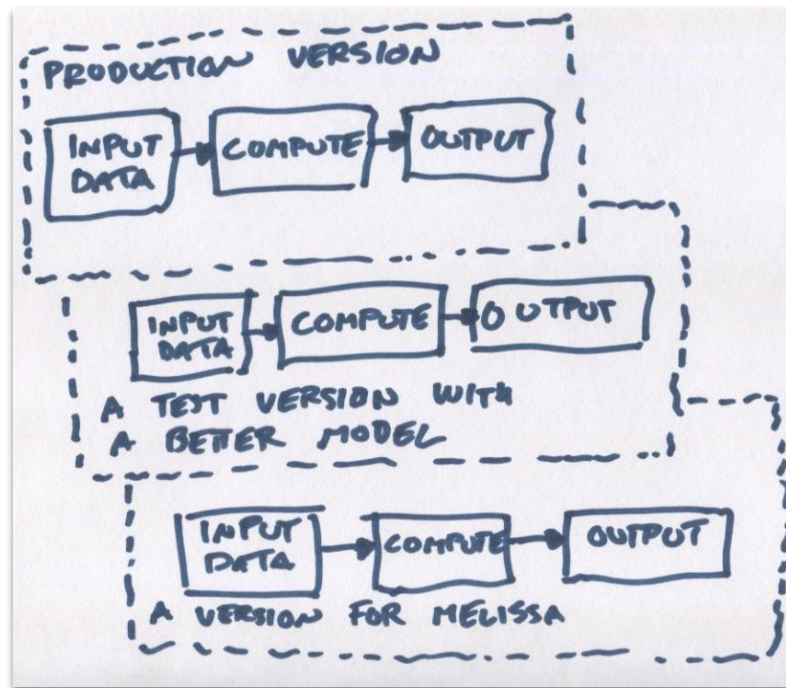 PRODUCTION VERSION
INPUT DATA
COMPUTE
OUTPUT
INPUT DATA
COMPUTE
OUTPUT
A TEST VERSION WITH
A BETTER MODEL
INPUT DATA
COMPUTE
OUTPUT
A VERSION FOR MELISSA